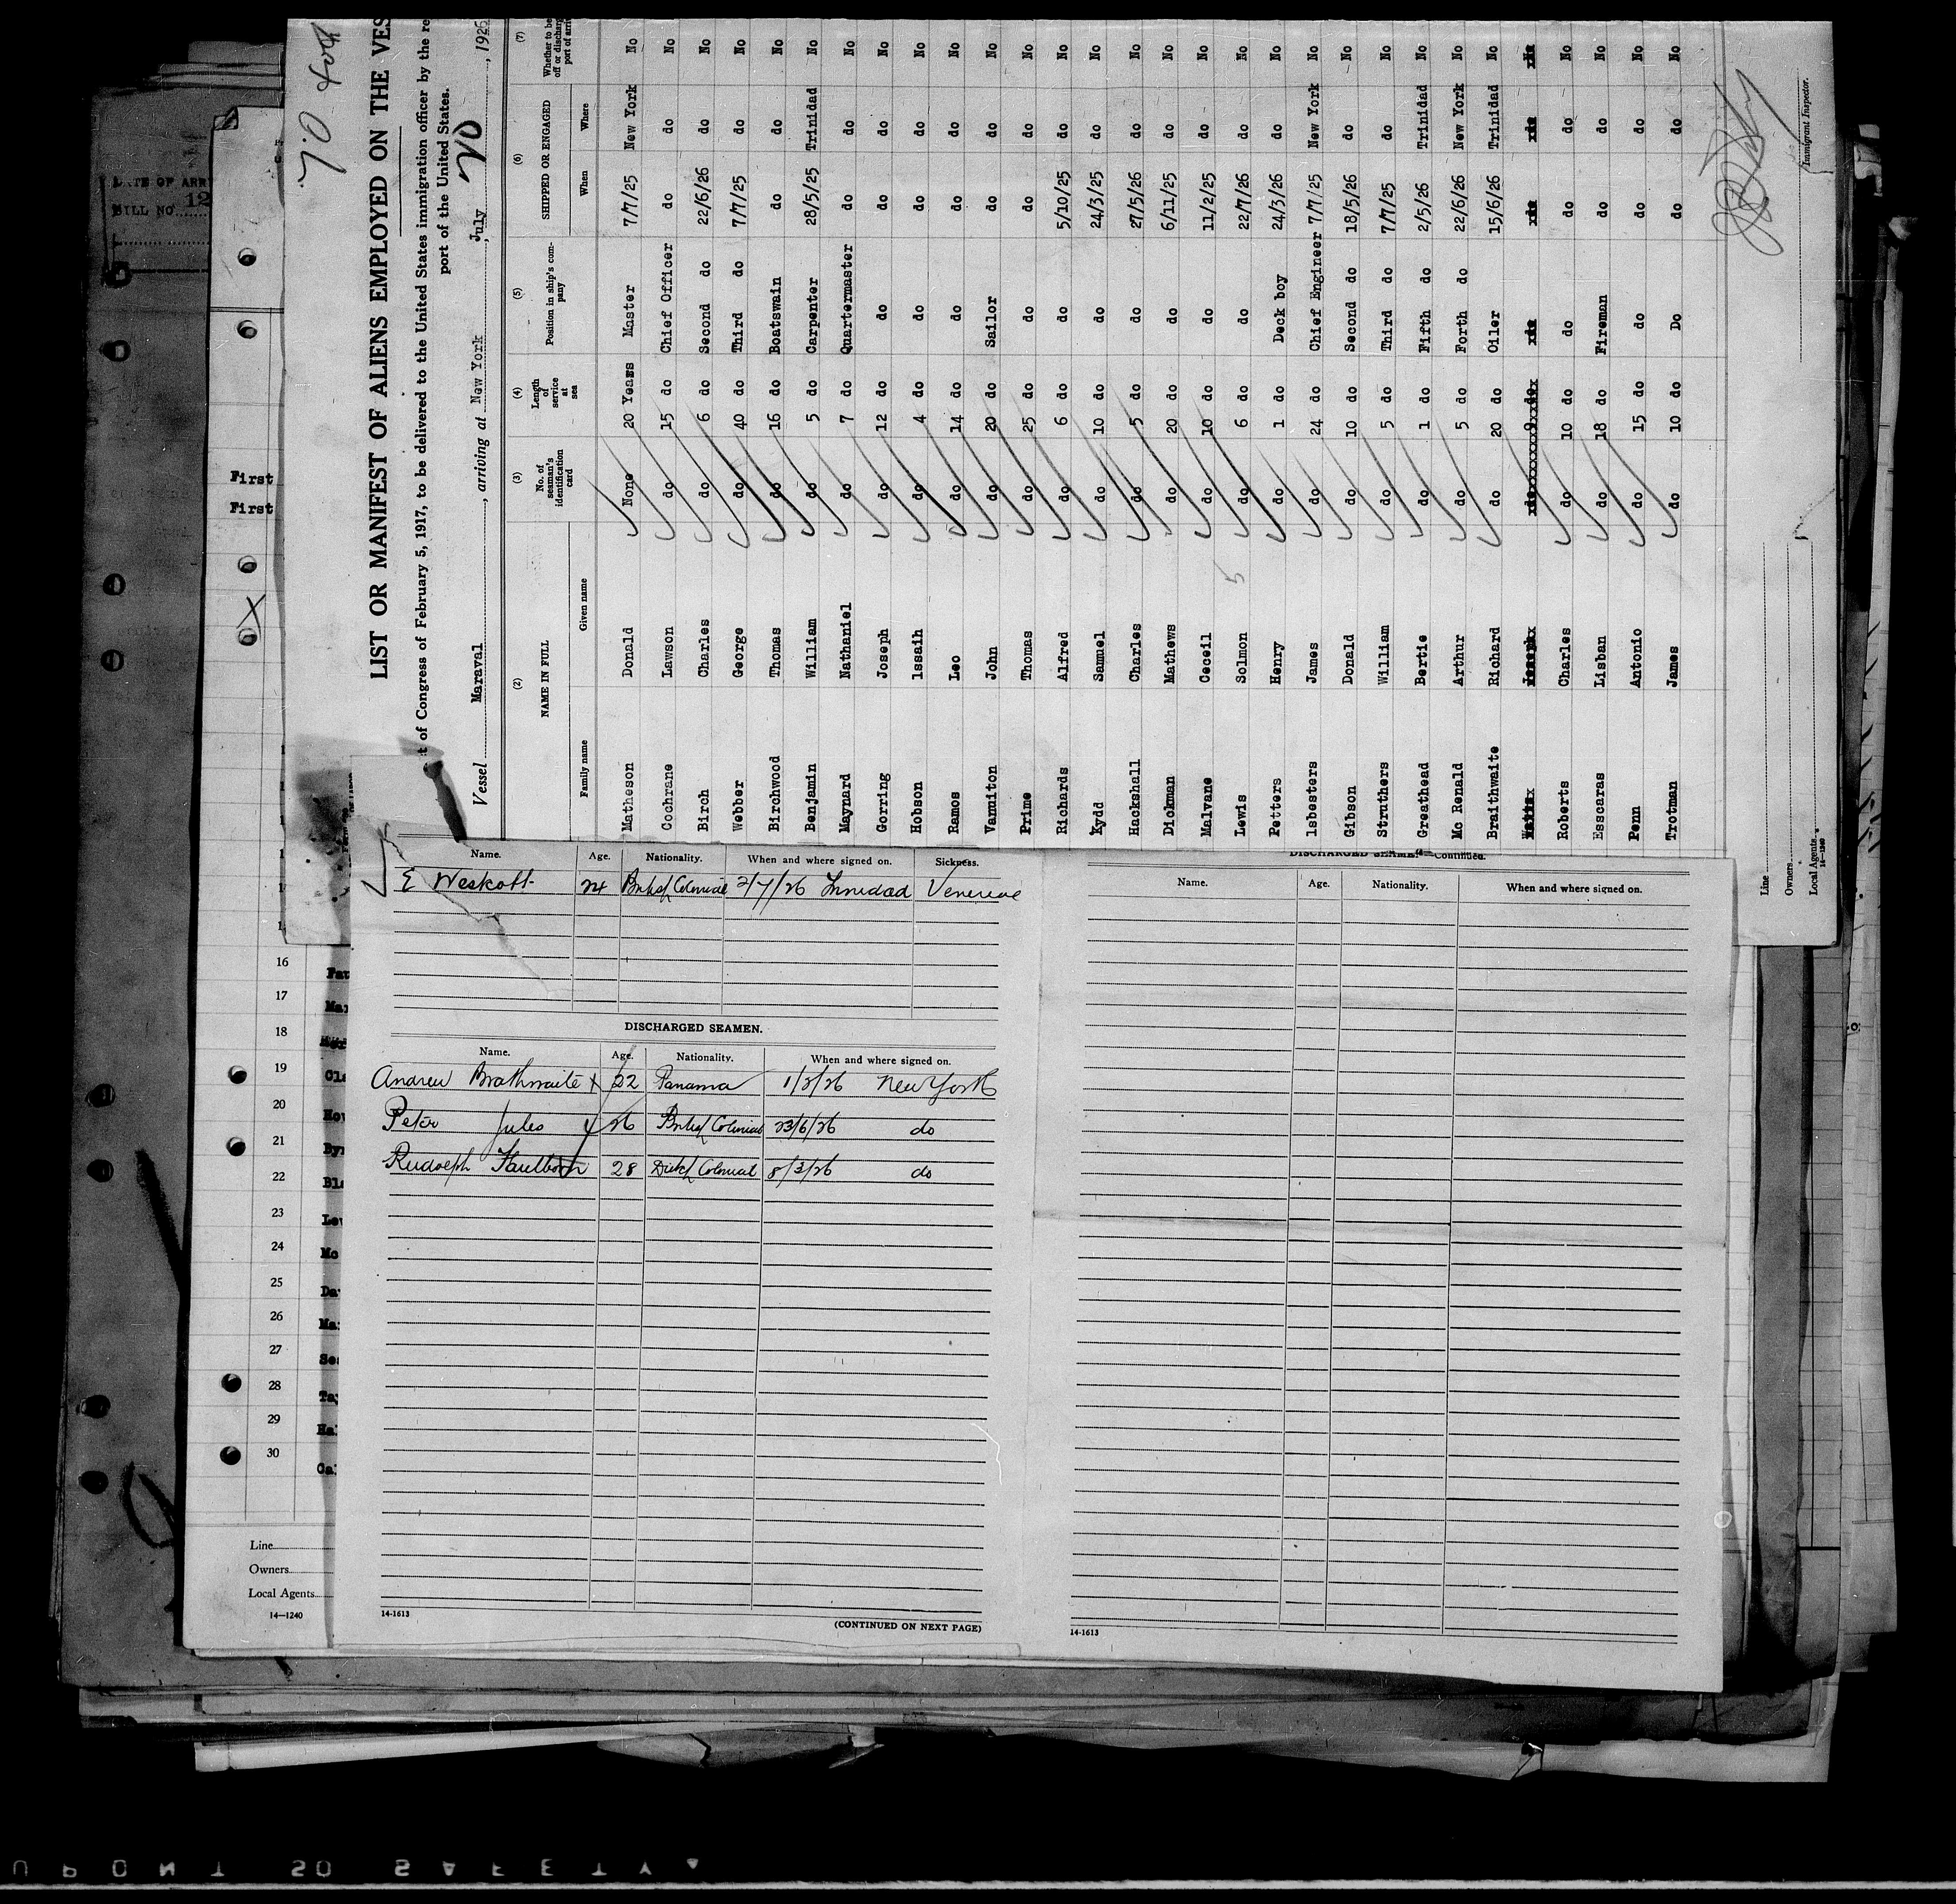 LIST OR MANIFEST OF ALIENS EMPLOYED ON THE VES
t of Congress of February 5, 1917, to be delivered to the United States immigration officer by the re
port of the United States.
Vessel Maraval, arriving at New York, July 20, 1926
(2) (3) (4) (5) (6) (7)
NAME IN FULL No. of seaman's identification card Length of service at sea Position in ship's company SHIPPED OR ENGAGED Whether to be
off or discharg
port of arriv
Family name Given name When Where
Matheson Donald None 20 Years Master 7/7/25 New York No
Cochrane Lawson do 15 do Chief Officer do do No
Birch Charles do 6 do Second do 22/6/26 do No
Webber George do 40 do Third do 7/7/25 do No
Birchwood Thomas do 16 do Boatswain do do No
Benjamin William do 5 do Carpenter 28/5/25 Trinidad No
Maynard Nathaniel do 7 do Quartermaster do do No
Gorring Joseph do 12 do do do do No
Hobson Issaih do 4 do do do do No
Ramos Leo do 14 do do do do No
Vanmiton John do 20 do Sailor do do No
Prime Thomas do 25 do do do do No
Richards Alfred do 6 do do 5/10/25 do No
Kydd Samuel do 10 do do 24/3/25 do No
Hackshall Charles do 5 do do 27/5/26 do No
Dickman Mathews do 20 do do 6/11/25 do No
Malvane Ceceil do 10 do do 11/2/25 do No
Lewis Solmon do 6 do do 22/7/26 do No
Petters Henry do 1 do Deck boy 24/3/26 do No
Isbesters James do 24 do Chief Engineer 7/7/25 New York No
Gibson Donald do 10 do Second do 18/5/26 do No
Struthers William do 5 do Third do 7/7/25 do No
Greathead Bertie do 1 do Fifth do 2/5/26 Trinidad No
Mc Renald Arthur do 5 do Forth do 22/6/26 New York No
Braithwaite Richard do 20 do Oiler 15/6/26 Trinidad No
Roberts Charles do 10 do do do do No
Esscaras Lisban do 18 do Fireman do do No
Penn Antonio do 15 do do do do No
Trotman James do 10 do Do do do No
Immigrant Inspector.
Line
Owners
Local Agents
14—1240
DATE OF ARR
BILL NO. 12
First
First
Name. Age. Nationality. When and where signed on. Sickness.
E Weskott 24 British Colonial 2/7/26 Trinidad Venereal
DISCHARGED SEAMEN.
Name. Age. Nationality. When and where signed on.
Andrew Brathwaite x 22 Panama 1/2/26 New York
Peter Jules 26 British Colonial 23/6/26 do
Rudolph 28 Dutch Colonial 8/3/26 do
14-1613
(CONTINUED ON NEXT PAGE)
DISCHARGED SEAMEN—Continued.
Name. Age. Nationality. When and where signed on.
14-1613
16
17
18
19
20
21
22
23
24
25
26
27
28
29
30
Line
Owners
Local Agents
14—1240
DUPONT SO SAFETY